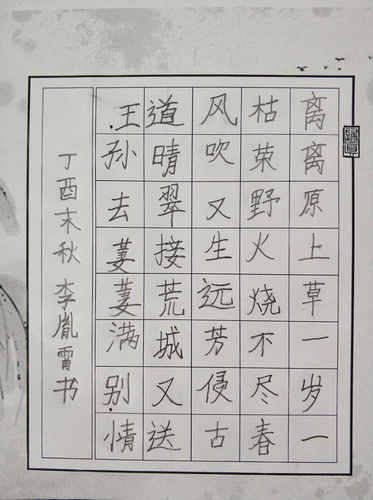 离离原上草一岁一
枯荣野火烧不尽春
风吹又生远芳侵古
道晴翠接荒城又送
王孙去萋萋满别情
丁酉末秋李胤霄书